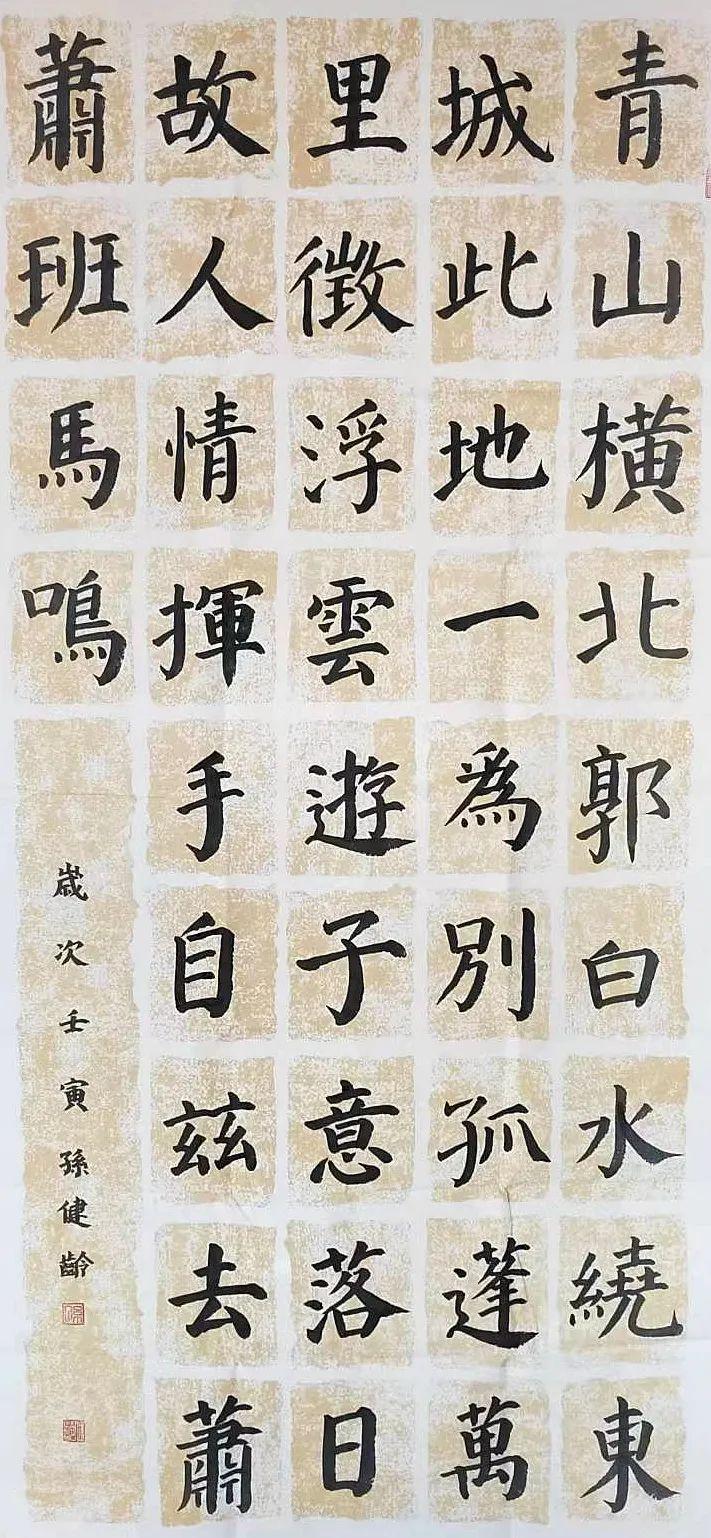 青山橫北郭白水繞東
城此地一爲別孤蓬萬
里徵浮雲遊子意落日
故人情揮手自茲去蕭
蕭班馬鳴
歲次壬寅孫健齡